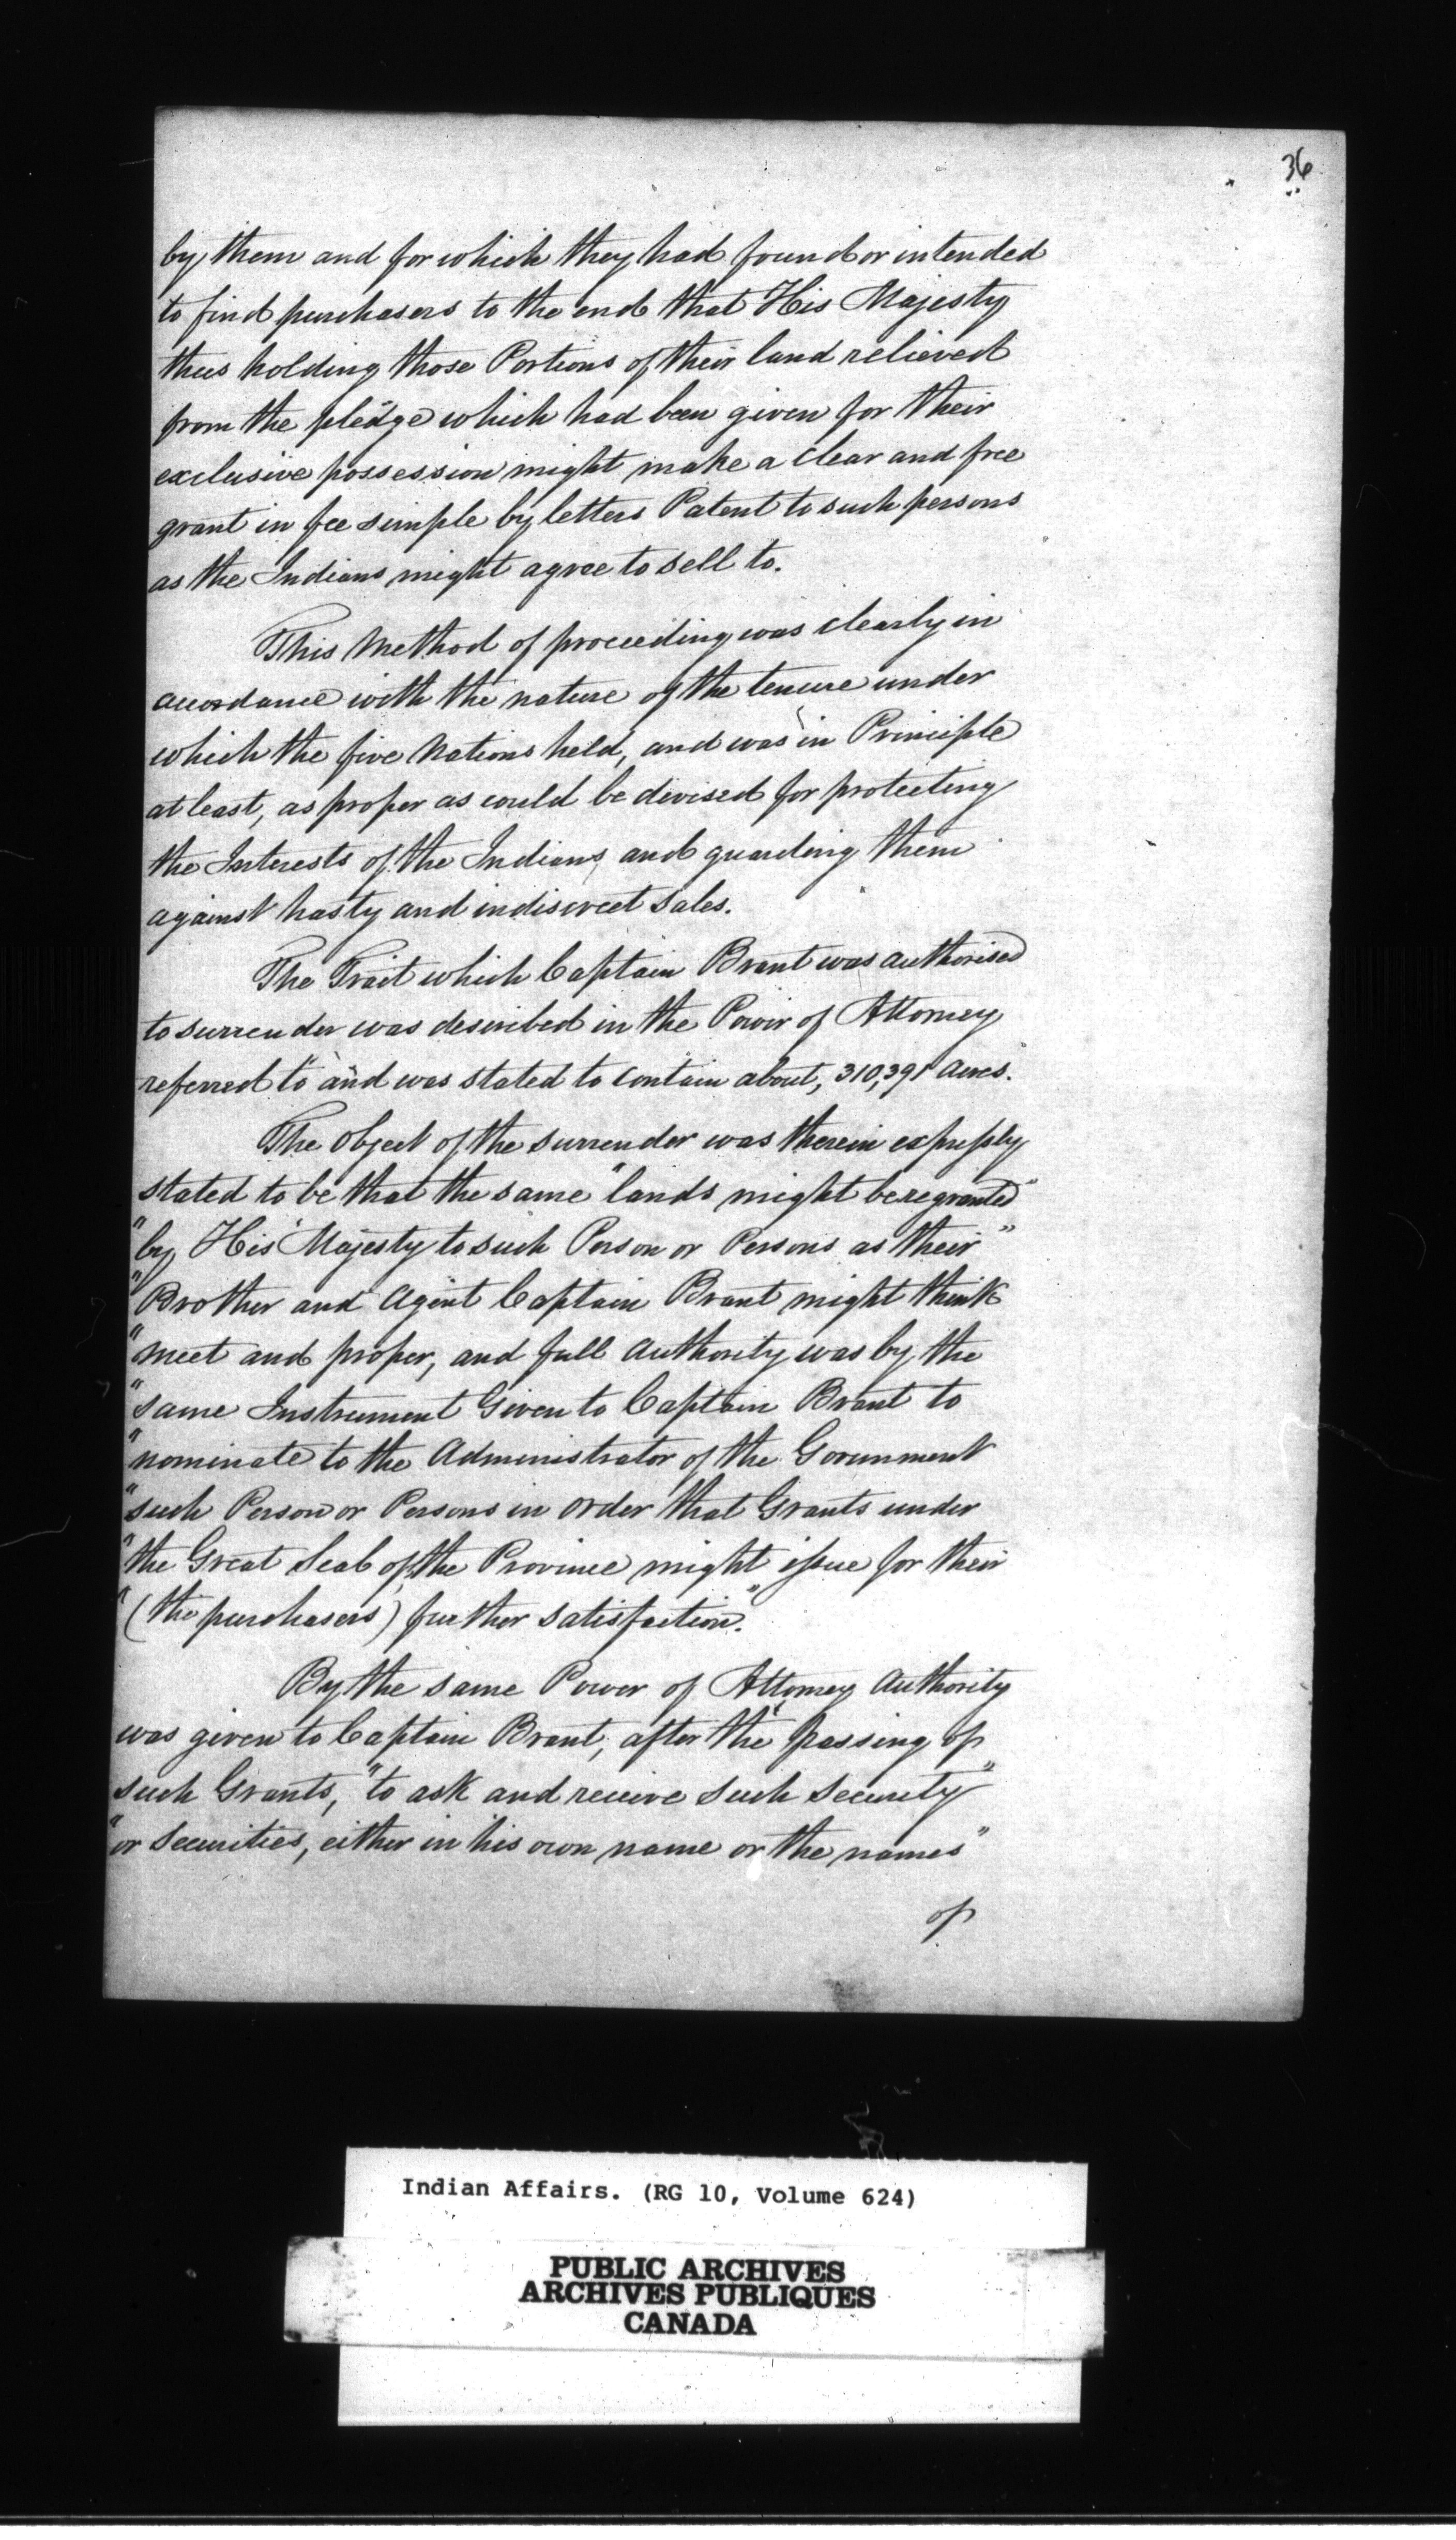 36
by them and for which they had found or intended
to find purchasers to the end that His Majesty
thus holding those Portions of their land relieved
from the pledge which had been given for their
exclusive possession might make a clear and free
grant in fee simple by letters Patent to such persons
as the Indians might agree to sell to.
This Method of proceeding was clearly in
accordance with the nature of the tenure under
which the five Nations held, and was in Principle
at least, as proper as could be devised for protecting
the Interests of the Indians and guarding them
against hasty and indiscreet Sales.
The Tract which Captain Brant was authorised
to surrender was described in the Power of Attorney
referred to and was stated to contain about, 310,391 Acres.
The object of the surrender was therein expressly
stated to be that the same "lands might be regranted"
"by His Majesty to such Person or Persons as their"
"Brother and Agent Captain Brant might think
"meet and proper, and full Authority was by the
"same Instrument Given to Captain Brant to
"nominate to the Administrator of the Government
"such Person or Persons in order that Grants under
"the Great Seal of the Province might issue for their
"(the purchasers) further satisfaction."
By the same Power of Attorney Authority
was given to Captain Brant, after the passing of
such Grants, "to ask and receive such Security"
"or Securities, either in his own name or the names"
of
Indian Affairs. (RG 10, Volume 624)
PUBLIC ARCHIVES
ARCHIVES PUBLIQUES
CANADA